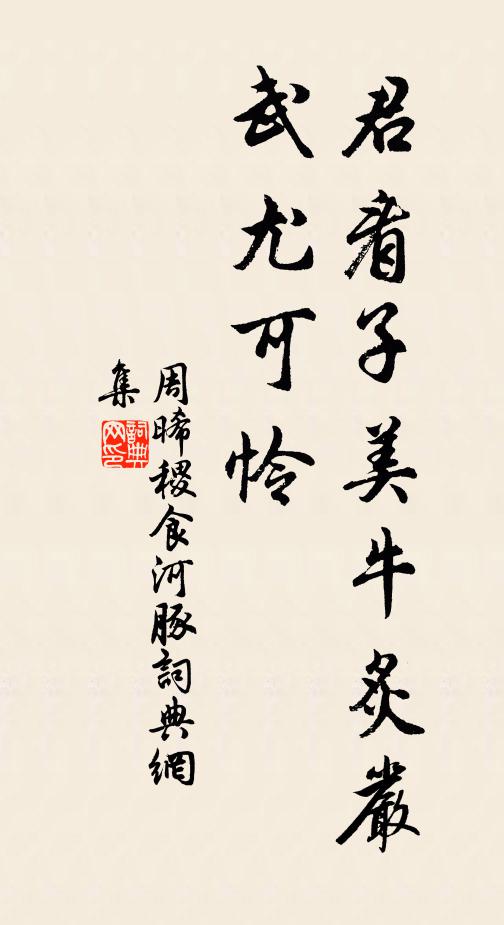 君看子美牛炙嚴
武尤可怜
周晞稷食河豚詞典網
集
詞典
网印